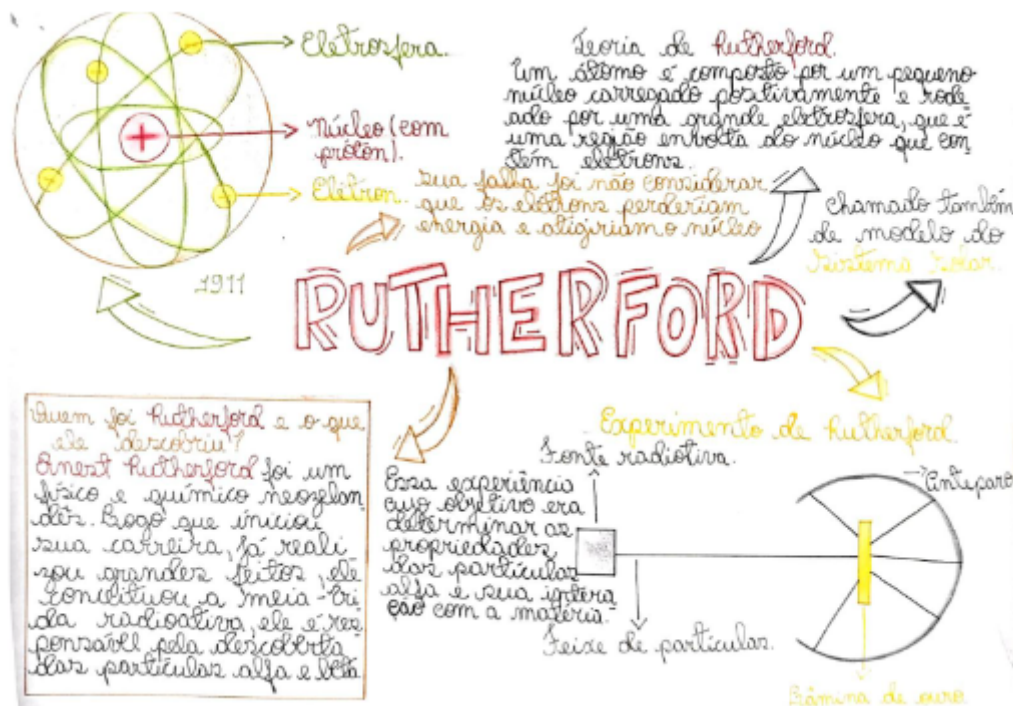 Eletrosfera.
Núcleo (com
próton).
Elétron.
1911
Teoria de Rutherford.
Um átomo é composto por um pequeno
núcleo carregado positivamente e rode-
ado por uma grande eletrosfera, que é
uma região envolta do núcleo que con-
tem elétrons.
sua falha foi não considerar
que os elétrons perderiam
energia e atigiriam o núcleo
chamado também
de modelo do
sistema solar.
RUTHERFORD
Quem foi Rutherford e o que
ele descobriu?
Ernest Rutherford foi um
físico e químico neozelan
dês. Logo que iniciou
sua carreira, já reali
zou grandes feitos, ele
conceituou a meia-vi
da radioativa, ele é res
ponsável pela descoberta
das partículas alfa e beta
Essa experiência
cujo objetivo era
determinar as
propriedades
das partículas
alfa e sua intera
ção com a matéria.
Experimento de Rutherford.
Fonte radiotiva.
Anteparo
Feixe de partículas.
Lâmina de ouro